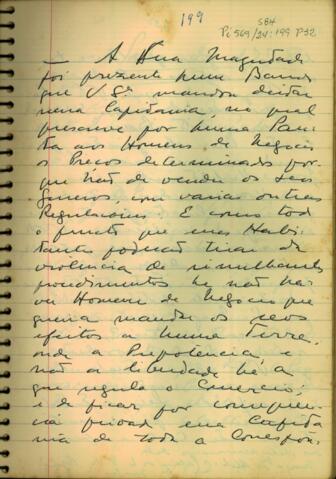 199
SBH
Pi 569/24:199 P32
— A Sua Magestade
foi presente hum Bando
que V. Sª mandou deitar
nessa Capitania, no qual
prescreve por huma Pau-
ta aos Homens de Negocio
os Preços determinados por
que hão de vender os seos
Generos, com varias outras
Regulações. E como todo
o fructo que esses Habi-
tantes poderão tirar da
violencia de similhantes
procedimentos he não ha-
ver Homens de Negocio que
queira mandar os seos
efeitos a huma Terra,
onde a Prepotencia, e
não a liberdade he a
que regula o Comercio;
e de ficar por consequen-
cia privada essa Capita
nia de toda a Correspon-